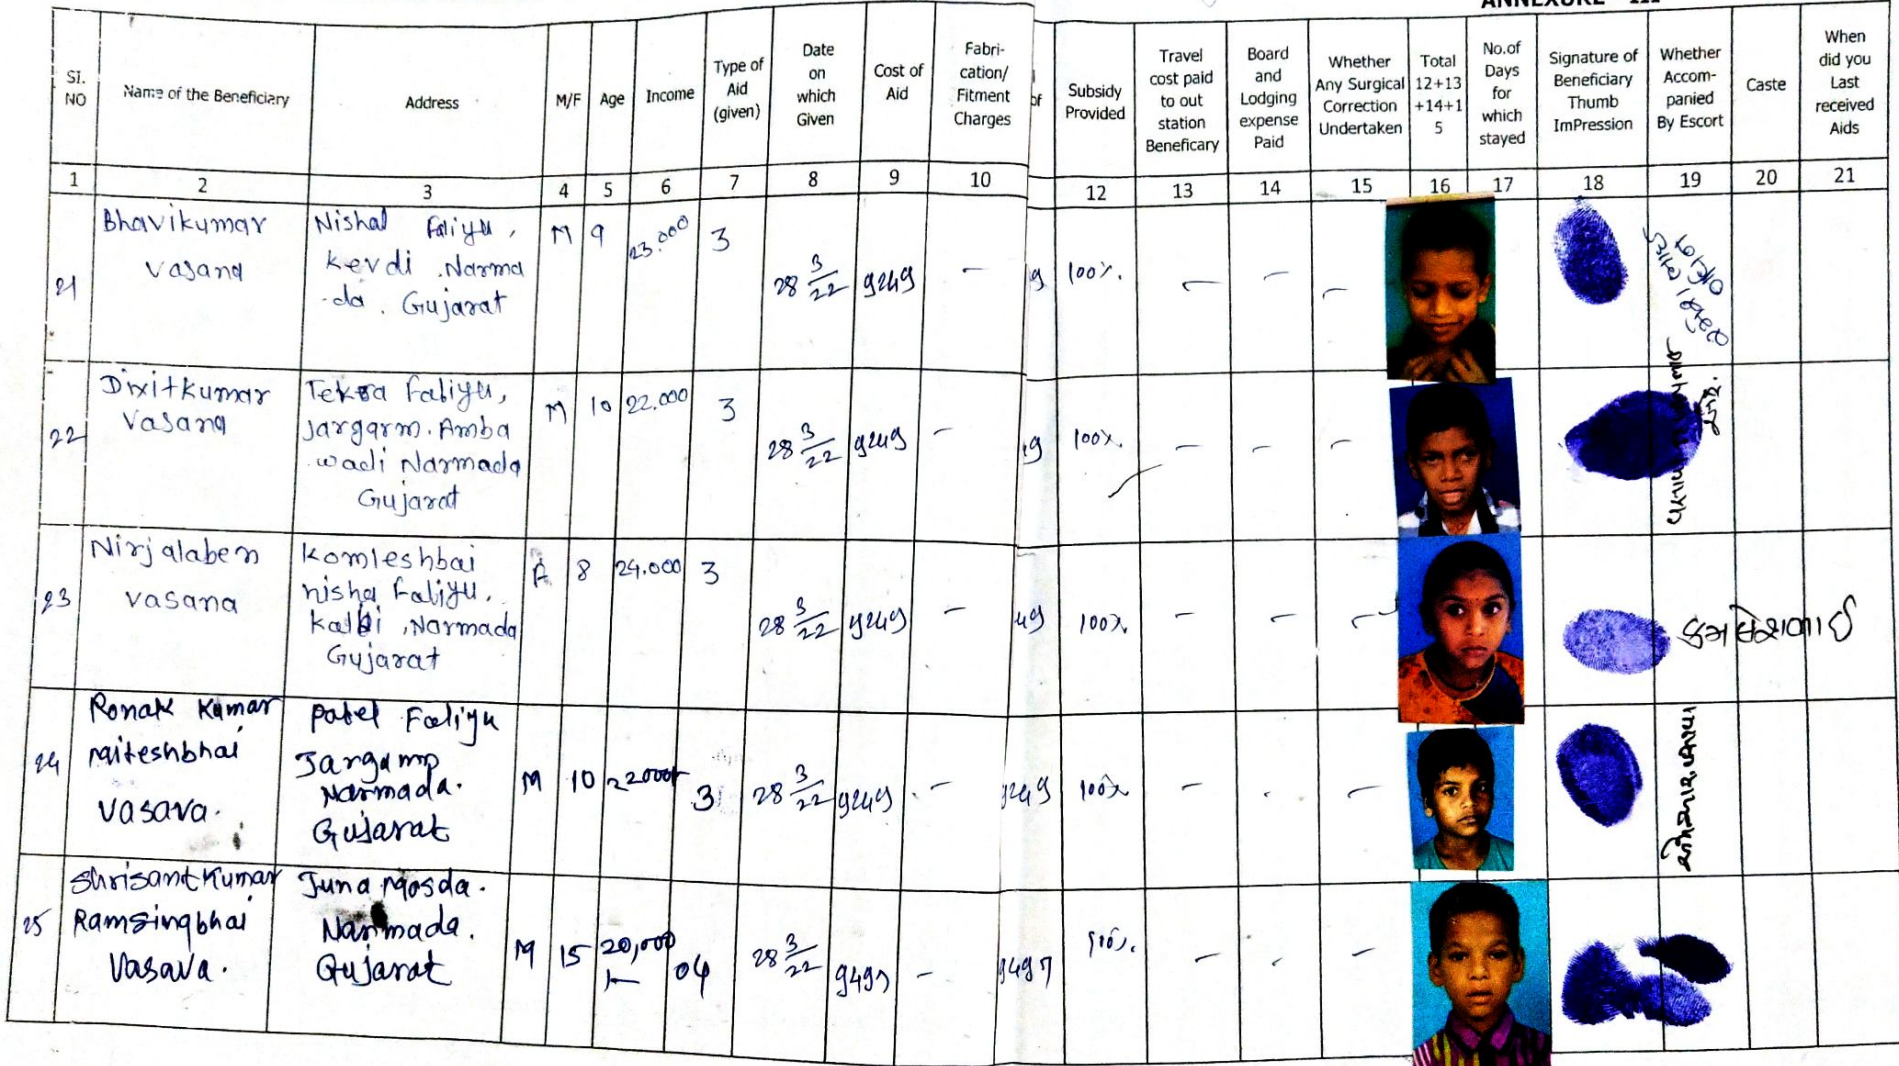 ANNEXURE - III
SI. NO
Name of the Beneficiary
Address
M/F
Age
Income
Type of Aid (given)
Date on which Given
Cost of Aid
Fabri-cation/ Fitment Charges
of
Subsidy Provided
Travel cost paid to out station Beneficary
Board and Lodging expense Paid
Whether Any Surgical Correction Undertaken
Total 12+13 +14+1 5
No.of Days for which stayed
Signature of Beneficiary Thumb ImPression
Whether Accom-panied By Escort
Caste
When did you Last received Aids
1 2 3 4 5 6 7 8 9 10 12 13 14 15 16 17 18 19 20 21
21
Bhavikumar
Vasana
Nishal Faliyu,
Kevdi .Narma
-da. Gujarat
M 9 23.000 3 28 3/22 9249 - 9 100%. - - -
22
Dixitkumar
Vasana
Tekra Faliyu,
Jargarm. Amba
wadi Narmada
Gujarat
M 10 22.000 3 28 3/22 9249 - 49 100%. - - -
23
Nirjalaben
vasana
Komleshbai
nisha Faliyu,
Kalbi ,Narmada
Gujarat
8 24.000 3 28 3/22 9249 - 49 100% - - -
કમલેશભાઈ
24
Ronak Kumar
Niteshbhai
Vasava.
Patel Faliyu
Jargamp
Narmada.
Gujarat
M 10 22000 3 28 3/22 9249 - 9249 100% - - -
25
Shrisant Kumar
Ramsingbhai
Vasava.
Juna Mosda.
Narmada.
Gujarat
M 15 20,000 04 28 3/22 9497 - 9497 - - -